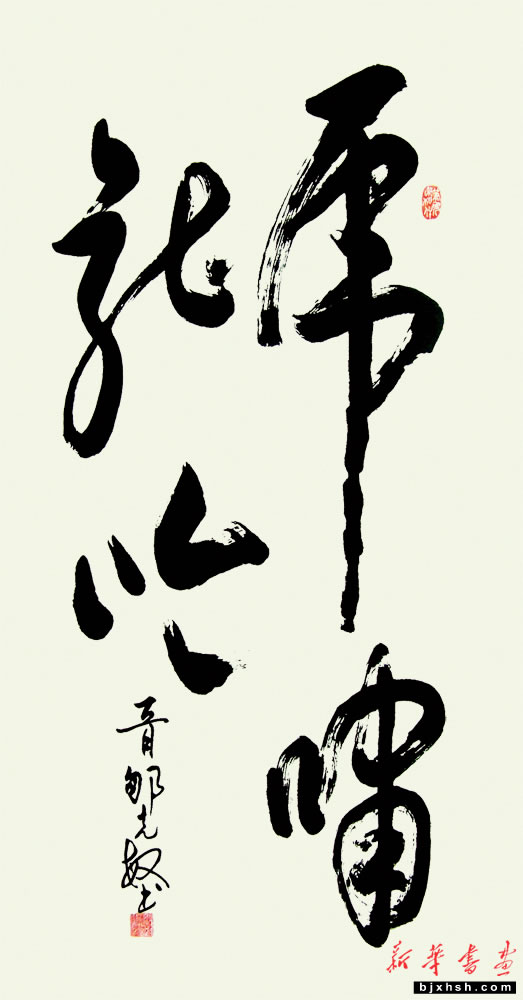 虎啸
龙吟
晋邹光敏书
新华书画
bjxhsh.com